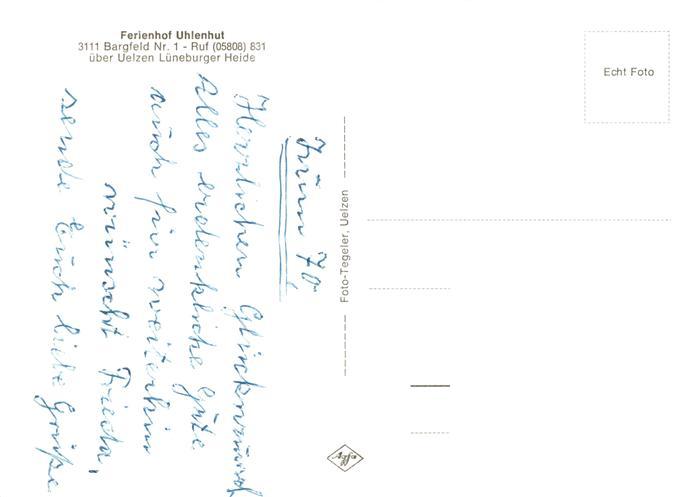 Ferienhof Uhlenhut
3111 Bargfeld Nr. 1 - Ruf (05808) 831
über Uelzen Lüneburger Heide
Echt Foto
Foto-Tegeler, Uelzen
Agfa
Zum 70
Herzlichen Glückwunsch
Alles erdenkliche Gute
auch für weiterhin
wünscht Frieda,
sende Euch liebe Grüße